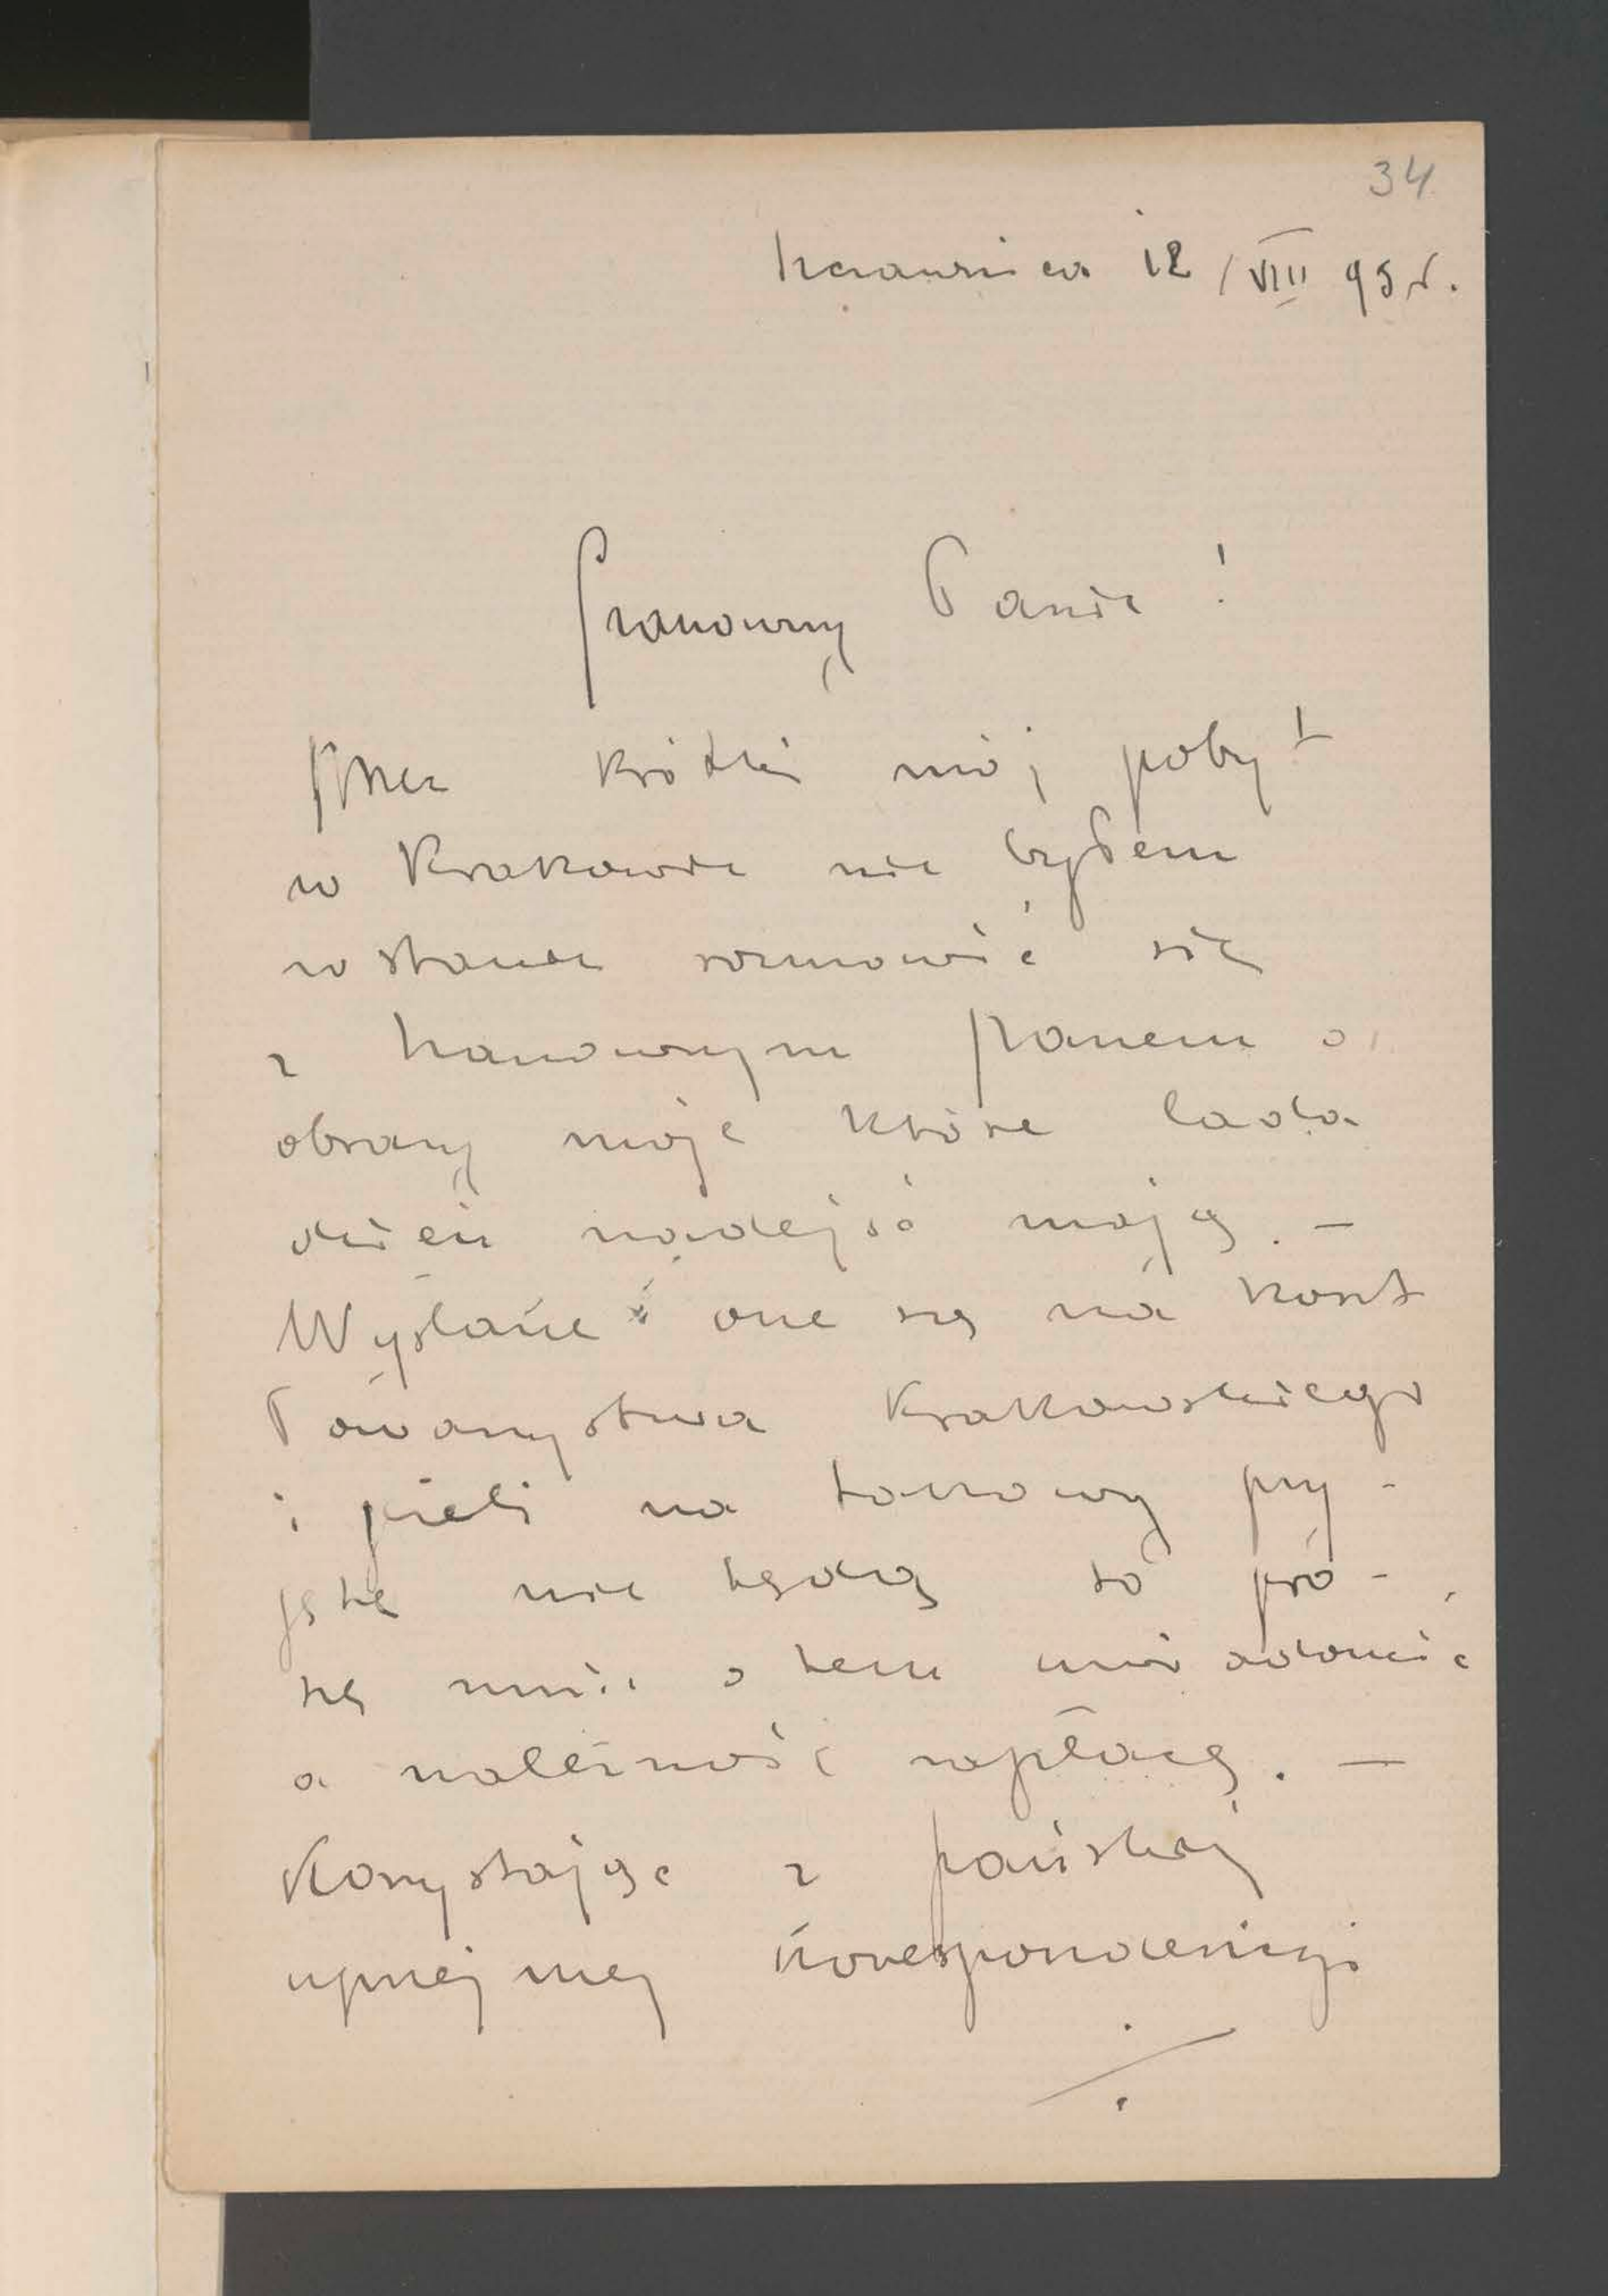 34
Szczawnica 12/VIII 95 r.
Szanowny Panie!
Przez krótki mój pobyt
w Krakowie nie byłem
w stanie rozmówić się
z szanownym Panem o
obrazy moje które lada
dzień nadejść mają. –
Wysłane one są na koszt
Towarzystwa Krakowskiego
i jeżeli na takowy przy-
jęte nie będą to pro-
szę mnie o tem uwiadomić
a należność wypłacę. –
Korzystając z pańskiej
uprzejmej korespondencyi